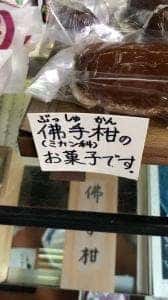 ぶっしゅ かん
佛手柑の
(ミカン科)
お菓子です。
佛手柑